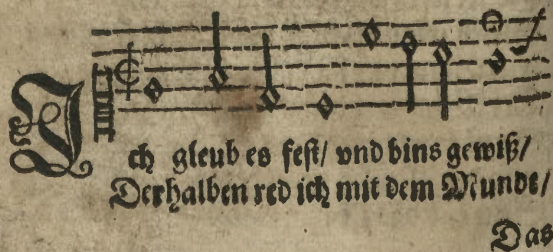 Ich gleub es fest/ vnd bins gewiß/
Derhalben red ich mit dem Munde/
Das